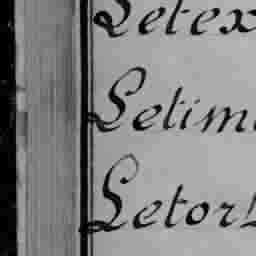 Letex
Letim
Letor